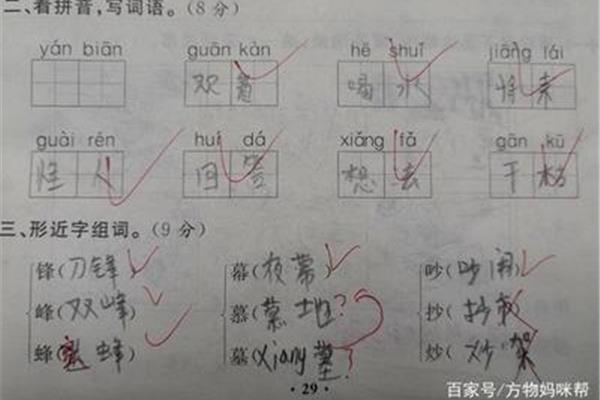 二、看拼音,写词语。(8分)
yán biān guān kàn hē shuǐ jiāng lái
观看 喝水 将来
guài rén huí dá xiǎng fǎ gān kū
怪人 回答 想去 干枯
三、形近字组词。(9分)
锋(刀锋) 幕(夜幕) 吵(吵闹)
峰(双峰) 慕(墓地? 抄(抄
蜂(蜂) 墓(xiang ? 炒(炒
·29·
百家号/方物妈咪帮